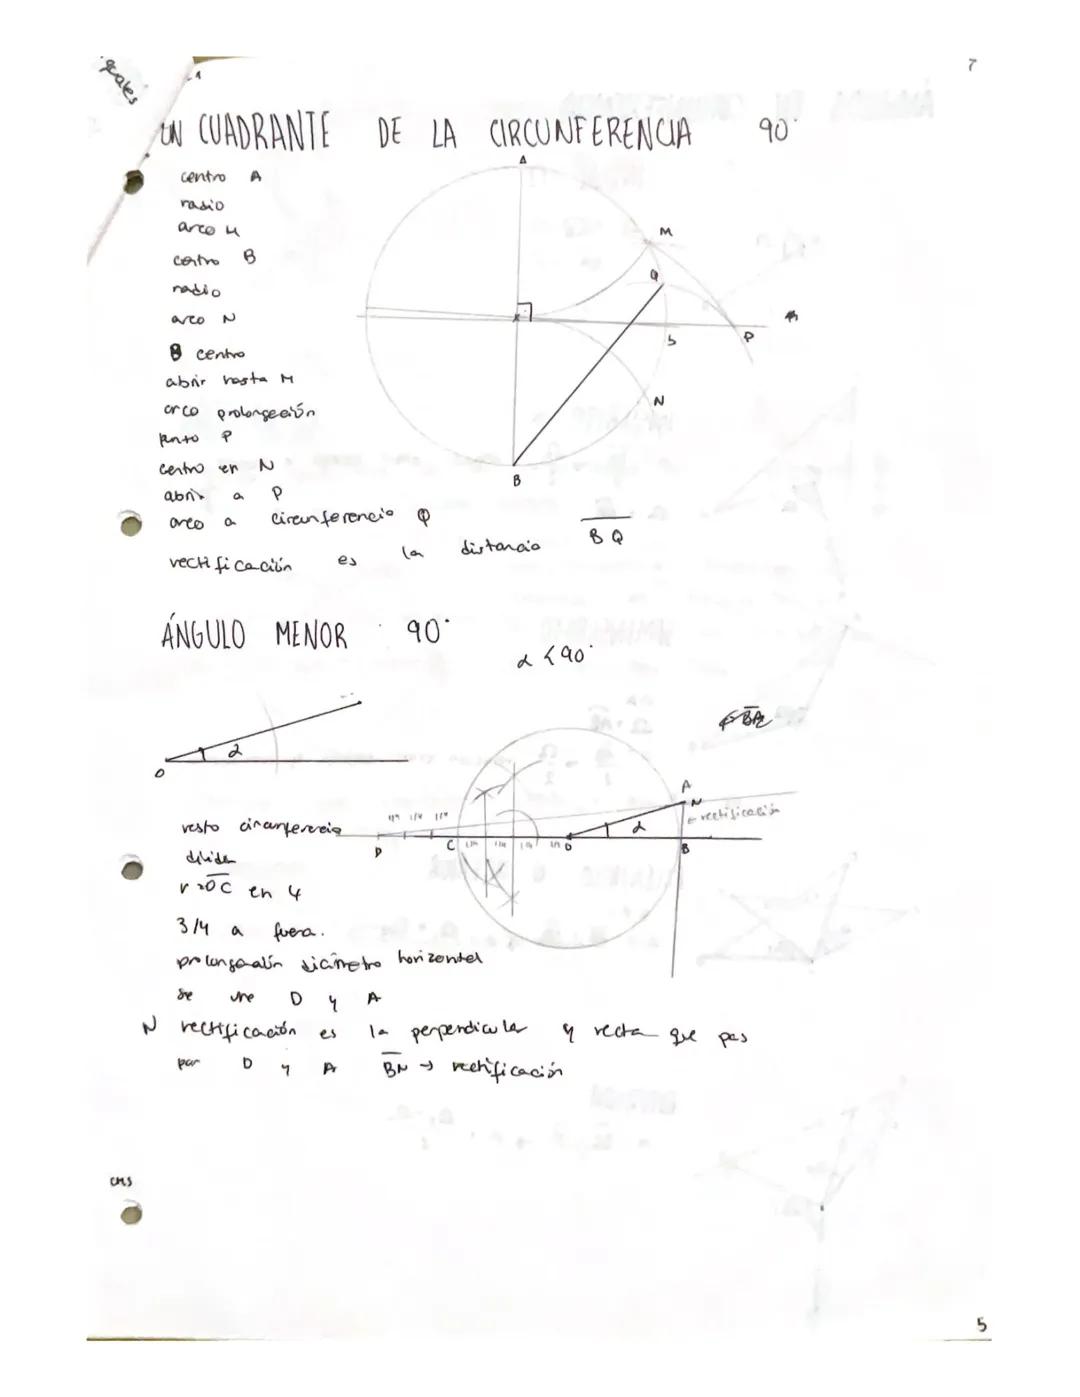 guales
7
UN CUADRANTE DE LA CIRCUNFERENCIA 90°
centro A
radio
arco M
centro B
radio
arco N
B centro
abrir hasta M
arco prolongación
punto P
centro en N
abrir a P
arco a circunferencia Q
rectificación es la distancia BQ
A
M
Q
S
P
N
B
ÁNGULO MENOR 90°
α < 90°
α
O
resto circunferencia
dividen
r = OC en 4
3/4 a fuera.
prolongación diámetro horizontal
se une D y A
N rectificación es la perpendicular y recta que pas
por D y A BN → rectificación
1/4 1/4 1/4
D
C
1/4 1/4 1/4 1/4
O
α
A
N
← rectificación
B
5